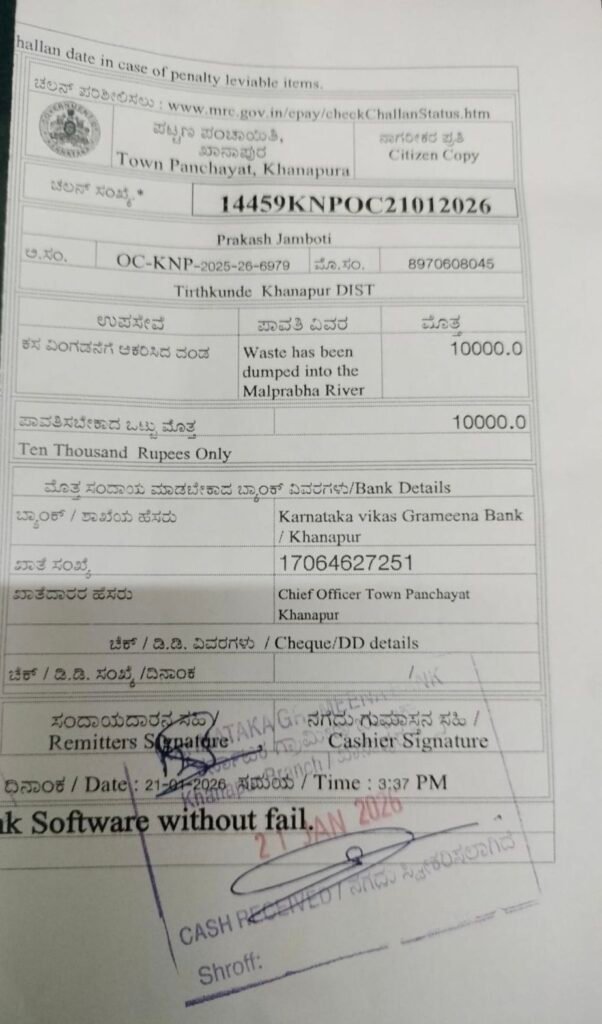 hallan date in case of penalty leviable items.
ಚಲನ್ ಪರಿಶೀಲಿಸಲು : www.mrc.gov.in/epay/checkChallanStatus.htm
ಪಟ್ಟಣ ಪಂಚಾಯಿತಿ,
ಖಾನಾಪುರ
Town Panchayat, Khanapura
ನಾಗರೀಕರ ಪ್ರತಿ
Citizen Copy
ಚಲನ್ ಸಂಖ್ಯೆ.* 14459KNPOC21012026
Prakash Jamboti
ಅ.ಸಂ. OC-KNP-2025-26-6979 ಮೊ.ಸಂ. 8970608045
Tirthkunde Khanapur DIST
ಉಪಸೇವೆ ಪಾವತಿ ವಿವರ ಮೊತ್ತ
ಕಸ ವಿಂಗಡನೆಗೆ ಆಕರಿಸಿದ ದಂಡ Waste has been 10000.0
dumped into the
Malprabha River
ಪಾವತಿಸಬೇಕಾದ ಒಟ್ಟು ಮೊತ್ತ 10000.0
Ten Thousand Rupees Only
ಮೊತ್ತ ಸಂದಾಯ ಮಾಡಬೇಕಾದ ಬ್ಯಾಂಕ್ ವಿವರಗಳು/Bank Details
ಬ್ಯಾಂಕ್ / ಶಾಖೆಯ ಹೆಸರು Karnataka vikas Grameena Bank
/ Khanapur
ಖಾತೆ ಸಂಖ್ಯೆ 17064627251
ಖಾತೆದಾರರ ಹೆಸರು Chief Officer Town Panchayat
Khanapur
ಚೆಕ್ / ಡಿ.ಡಿ. ವಿವರಗಳು / Cheque/DD details
ಚೆಕ್ / ಡಿ.ಡಿ. ಸಂಖ್ಯೆ /ದಿನಾಂಕ /
ಸಂದಾಯದಾರನ ಸಹಿ/ ನಗದು ಗುಮಾಸ್ತನ ಸಹಿ /
Remitters Signature Cashier Signature
ದಿನಾಂಕ / Date : 21-01-2026 ಸಮಯ / Time : 3:37 PM
nk Software without fail.
Khanapur Branch /
21 JAN 2026
CASH RECEIVED / ನಗದು ಸ್ವೀಕರಿಸಲಾಗಿದೆ
Shroff: